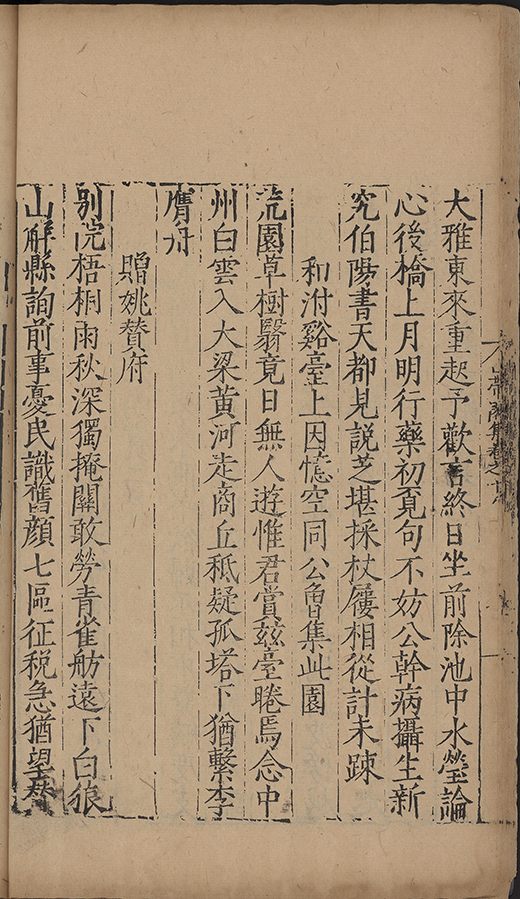 大雅東來重起予歡言終日坐前除池中水瑩論
心後橋上月明行藥初覔句不妨公幹病攝生新
究伯陽書天都見説芝堪採杖屨相從計未疎
和泭谿臺上因憶空同公曾集此園
荒園草樹翳竟日無人遊惟君賞茲臺睠焉念中
州白雲入大梁黄河走商丘秪疑孤塔下猶繫李
膺舟
贈姚賛府
别院梧桐雨秋深獨掩關敢勞青雀舫遠下白狼
山解縣詢前事憂民識舊顔七區征税急猶望